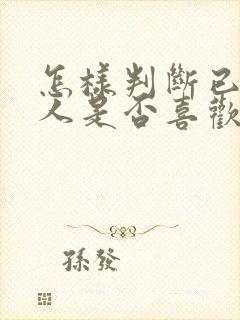 怎樣判斷已
人是否喜歡
孫發